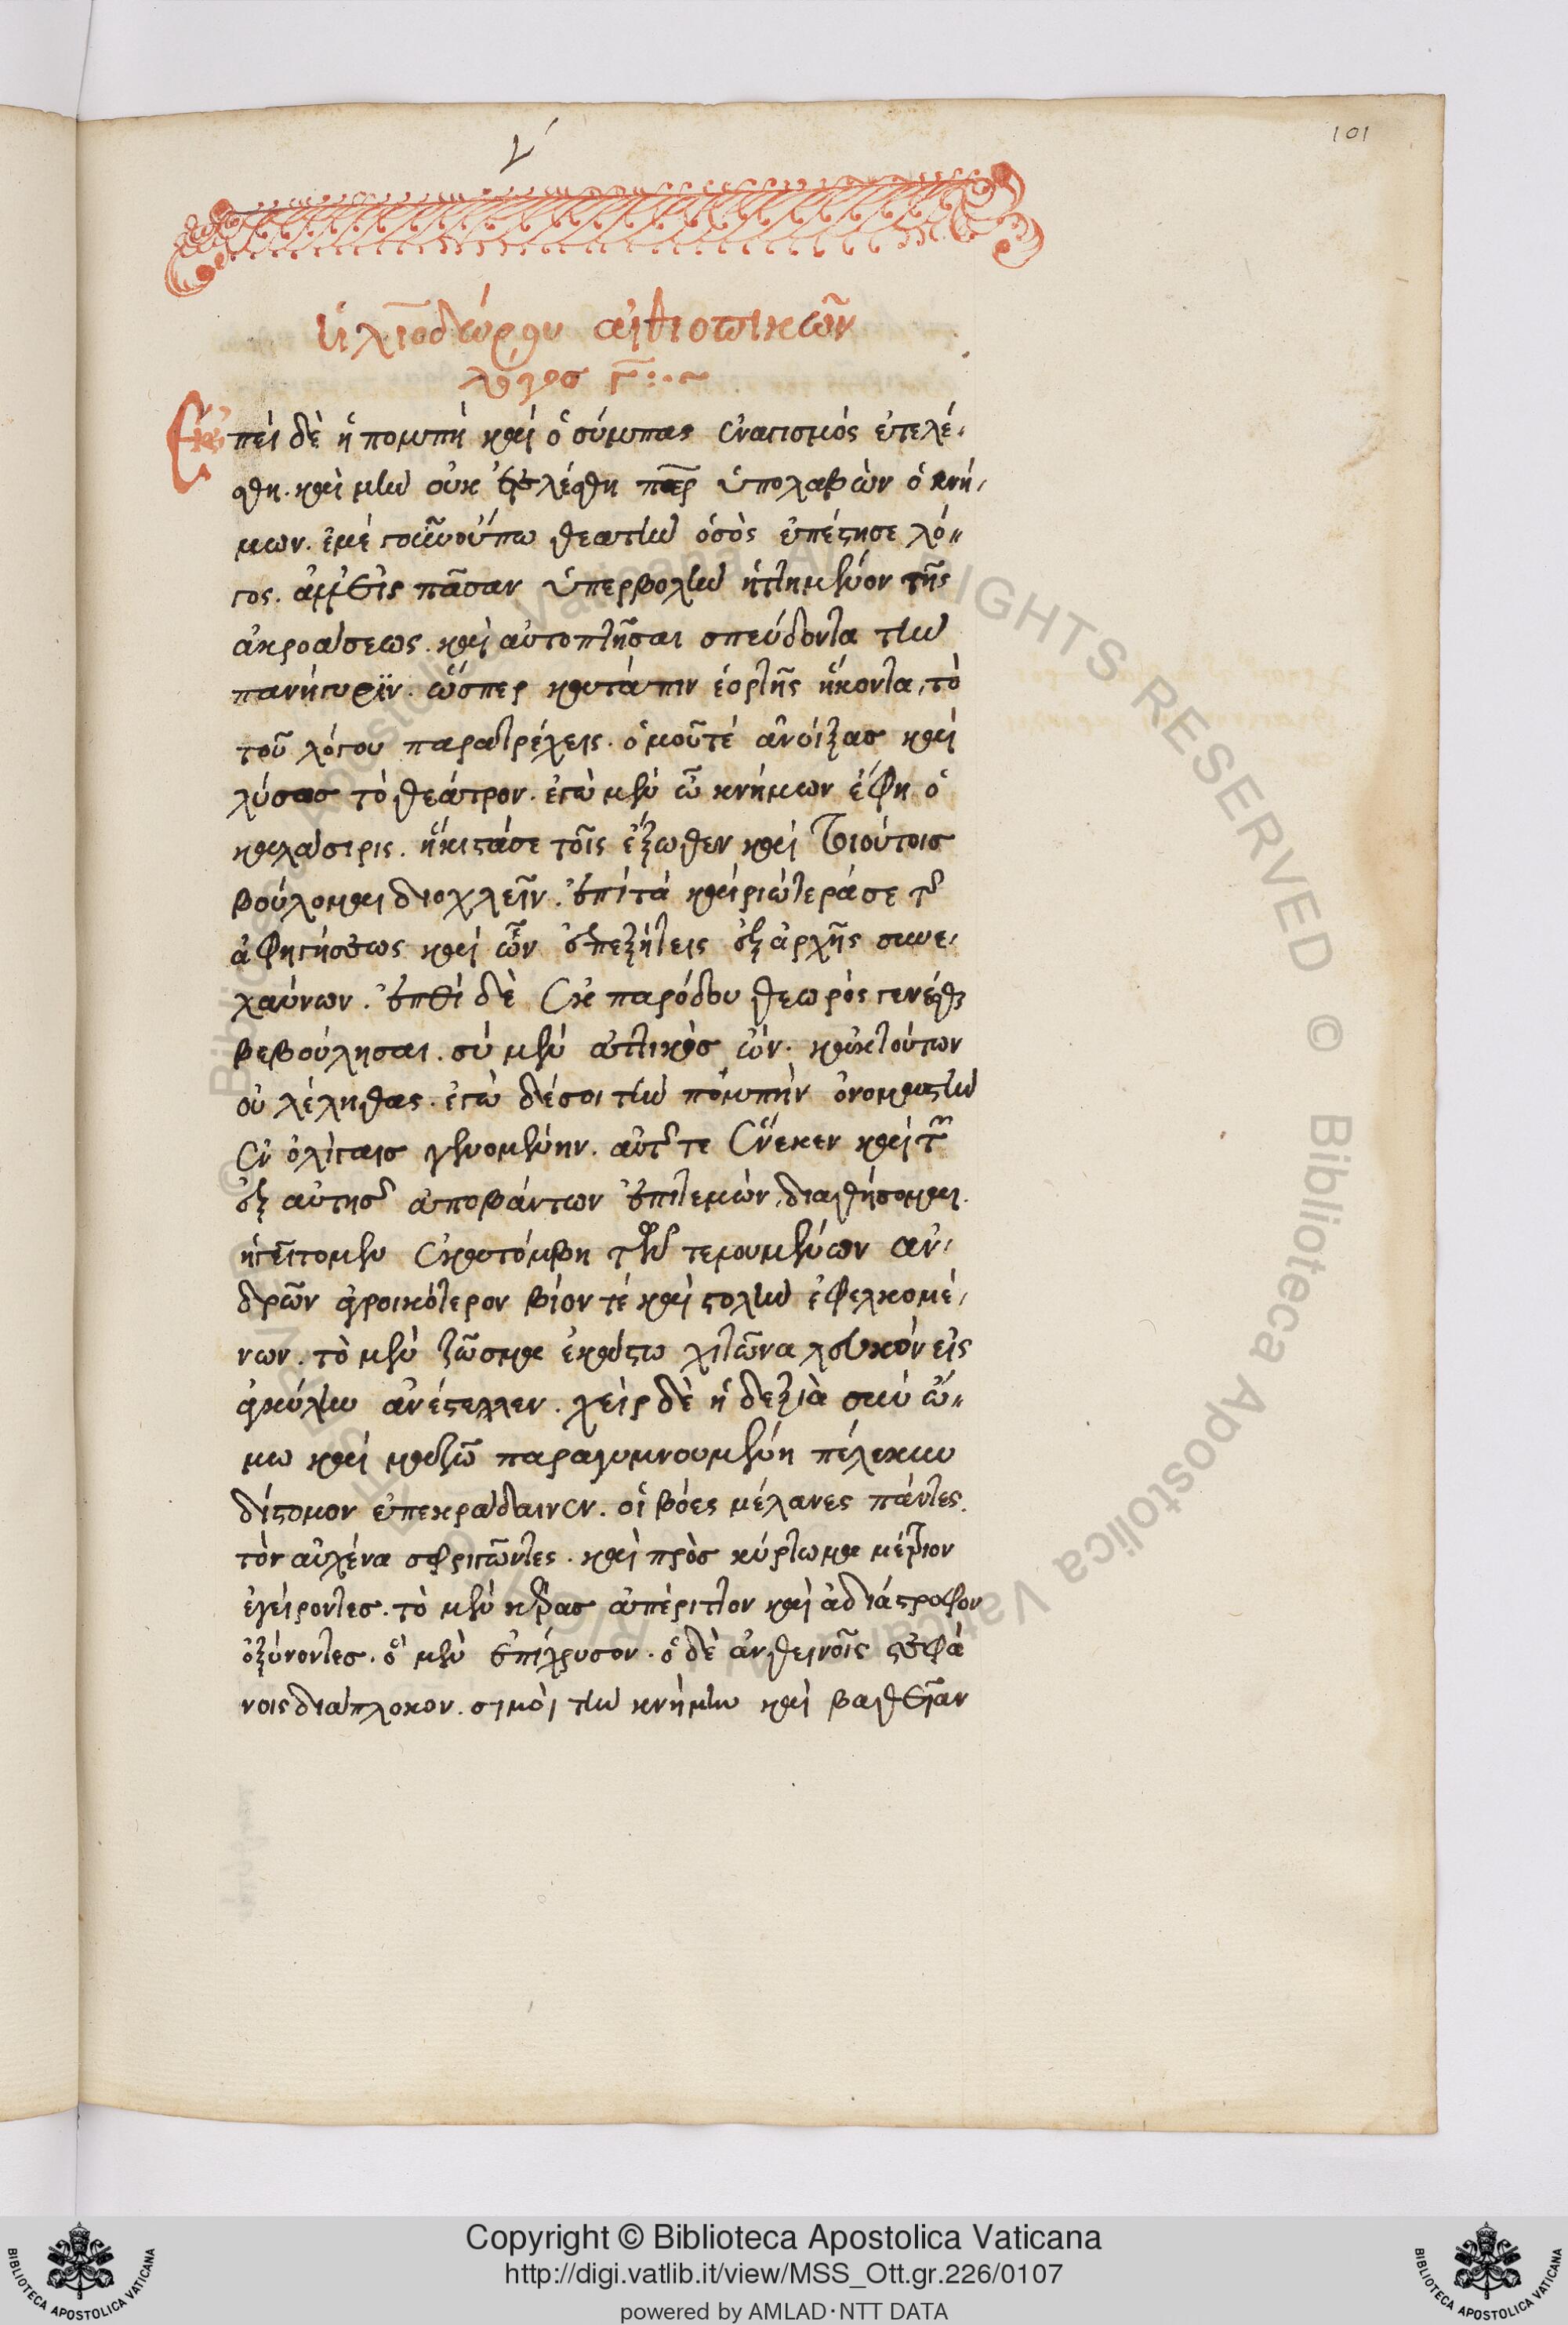 101
γ´
ἡλιοδώρου αἰθιοπικῶν
λόγος γ :·~
Ἐπεὶ δὲ ἡ πομπὴ καὶ ὁ σύμπας ἐναγισμὸς ἐτελέ-
σθη. καὶ μὴν οὐκ ἐτελέσθη πάτερ ὑπολαβὼν ὁ κνή-
μων. ἐμὲ γοῦν οὔπω θεατὴν ὁ σὸς ἐπέστησε λό-
γος. ἀλλ' εἰς πᾶσαν ὑπερβολὴν ἡττημένον τῆς
ἀκροάσεως. καὶ αὐτοπτῆσαι σπεύδοντα τὴν
πανήγυριν. ὥσπερ κατόπιν ἑορτῆς ἥκοντα, τὸ
τοῦ λόγου παρατρέχεις. ὁμοῦ τέ ἀνοίξας καὶ
λύσας τὸ θέατρον. ἐγὼ μὲν ὦ κνήμων ἔφη ὁ
καλάσιρις. ἥκιστά σε τοῖς ἔξωθεν καὶ τοιούτοις
βούλομαι διοχλεῖν. ἐπὶ τὰ καιριώτερά σε τῆς
ἀφηγήσεως καὶ ὧν ἐπεζήτεις ἐξ ἀρχῆς συνε-
λαύνων. ἐπεὶ δὲ ἐκ παρόδου θεωρὸς γενέσθαι
βεβούλησαι. σὺ μὲν ἀττικὸς ὢν. κἀκ τούτων
οὐ λέληθας. ἐγὼ δέ σοι τὴν πομπὴν ὀνομαστὴν
ἐν ὀλίγαις γενομένην. αὐτῆς τε ἕνεκεν καὶ τῶν
ἐξ αὐτῆς ἀποβάντων ἐπιτεμὼν διαθήσομαι.
ἡγεῖτο μὲν ἑκατόμβη τῶν τελουμένων ἀν-
δρῶν ἀγροικότερον βίον τέ καὶ στολὴν ἐφελκομέ-
νων. τὸ μὲν ζῶσμα ἑκάστω χιτῶνα λευκὸν εἰς
ἀγκύλην ἀνέστελλεν. χεὶρ δὲ ἡ δεξιὰ σὺν ὤ-
μω καὶ μαζῶ παραγυμνουμένη πέλεκυν
δίστομον ἐπεκράδαινεν. οἱ βόες μέλανες πάντες.
τὸν αὐχένα σφριγῶντες. καὶ πρὸς κύρτωμα μέτριον
ἐγείροντες. τὸ μὲν κέρας ἀπέριττον καὶ ἀδιάστροφον
ὀξύνοντες. ὁ μὲν ἐπίχρυσον. ὁ δὲ ἀνθεινοῖς στεφά
νοις διάπλοκον. σιμοὶ τὴν κνήμην καὶ βαθεῖαν
© Biblioteca Apostolica Vaticana ALL RIGHTS RESERVED © Biblioteca Apostolica Vaticana ALL RIGHTS RESERVED
Copyright © Biblioteca Apostolica Vaticana
http://digi.vatlib.it/view/MSS_Ott.gr.226/0107
powered by AMLAD·NTT DATA
BIBLIOTECA APOSTOLICA VATICANA
BIBLIOTECA APOSTOLICA VATICANA